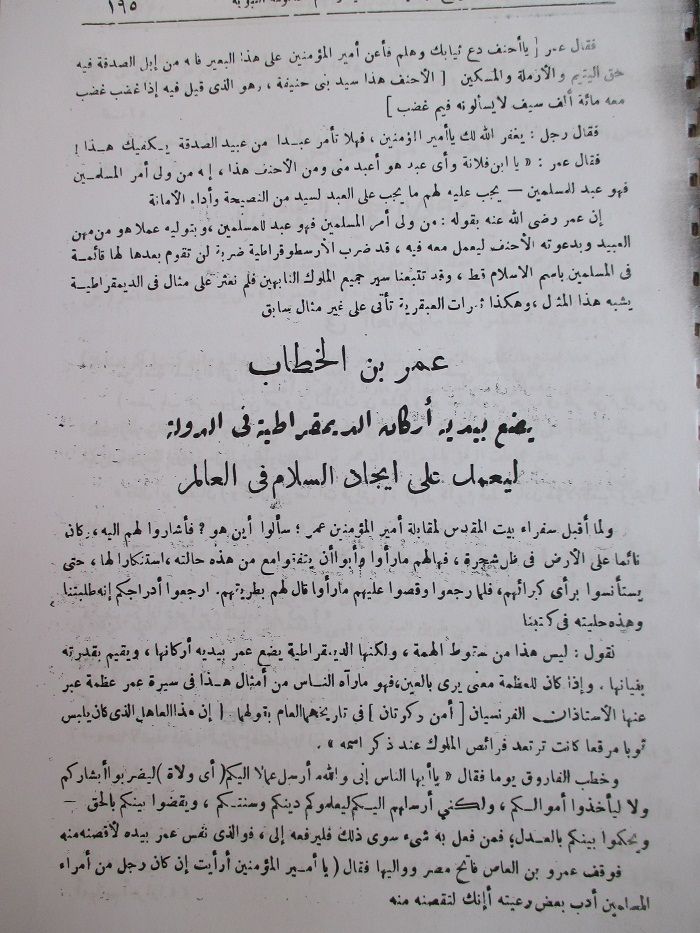 ١٩٥
فقال عمر [ يا أحنف دع ثيابك وهلم فأعن أمير المؤمنين على هذا البعير فانه من إبل الصدقة فيه
حق اليتيم والأرملة والمسكين [ الأحنف هذا سيد بنى حنيفة ، وهو الذى قيل فيه إذا غضب غضب
معه مائة ألف سيف لا يسألونه فيم غضب ]
فقال رجل : يغفر الله لك يا أمير المؤمنين ، فهلا تأمر عبدا من عبيد الصدقة يكفيك هذا !
فقال عمر : « يا ابن فلانة وأى عبد هو أعبد منى ومن الأحنف هذا ، إنه من ولى أمر المسلمين
فهو عبد للمسلمين — يجب عليه لهم ما يجب على العبد لسيد من النصيحة وأداء الأمانة
إن عمر رضى الله عنه بقوله : من ولى أمر المسلمين فهو عبد للمسلمين ، وبتوليه عملا هو من مهن
العبيد وبدعوته الأحنف ليعمل معه فيه ، قد ضرب الأرسطوقراطية ضربة لن تقوم بعدها لها قائمة
فى المسلمين باسم الاسلام قط ، وقد تتبعنا سير جميع الملوك النابهين فلم نعثر على مثال فى الديمقراطية
يشبه هذا المثل ، وهكذا ثمرات العبقرية تأتى على غير مثال سابق
عمر بن الخطاب
يضع بيديه أركان الديمقراطية فى الدولة
ليعمل على ايجاد السلام فى العالم
ولما أقبل سفراء بيت المقدس لمقابلة أمير المؤمنين عمر ؛ سألوا أين هو ؟ فأشاروا لهم اليه ، وكان
نائما على الأرض فى ظل شجرة ، فهالهم ما رأوا وأبوا أن يتفقوا مع من هذه حالته ، استنكارا لها ، حتى
يستأنسوا برأى كبرائهم ، فلما رجعوا وقصوا عليهم ما رأوا قال لهم بطريقهم . ارجعوا أدراجكم إنه طلبتنا
وهذه حليته فى كتبنا
نقول : ليس هذا من سقوط الهمة ، ولكنها الديمقراطية يضع عمر بيديه أركانها ، ويقيم بقدرته
بنيانها . وإذا كان للعظمة معنى يرى بالعين ، فهو ما رآه الناس من أمثال هذا فى سيرة عمر عظمة عبر
عنها الأستاذان الفرنسيان [ أمن ركرتان ] فى تاريخهما العام بقولهما [ إن هذا العاهل الذى كان يلبس
ثوبا مرقعا كانت ترتعد فرائص الملوك عند ذكر اسمه » .
وخطب الفاروق يوما فقال « يا أيها الناس إنى والله ما أرسل عمالا اليكم ( أى ولاة ) ليضربوا أبشاركم
ولا ليأخذوا أموالكم ، ولكنى أرسلهم اليكم ليعلموكم دينكم وسنتكم ، ويقضوا بينكم بالحق —
ويحكموا بينكم بالعدل ؛ فمن فعل به شىء سوى ذلك فليرفعه إلى ، فوالذى نفس عمر بيده لأقصنه منه
فوقف عمرو بن العاص فاتح مصر وواليها فقال ( يا أمير المؤمنين أرأيت إن كان رجل من أمراء
المسلمين أدب بعض رعيته أإنك لتقصنه منه